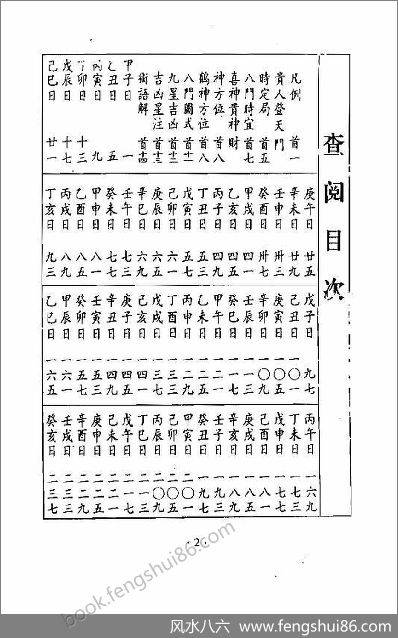 查閱目次
凡例 首一
貴人登天門
時定局 首五
八門時宜 首七
喜神貴神財
神方位 首八
鶴神方位 首八
八門圖式
九星吉凶
吉凶星注
術語解
甲子日 一
乙丑日 五
丙寅日 九
丁卯日 十三
戊辰日 十七
己巳日 廿一
庚午日 廿五
辛未日 廿九
壬申日 卅三
癸酉日 卅七
甲戌日 四一
乙亥日 四五
丙子日 四九
丁丑日 五三
戊寅日 五七
己卯日 六一
庚辰日 六五
辛巳日 六九
壬午日 七三
癸未日 七七
甲申日 八一
乙酉日 八五
丙戌日 八九
丁亥日 九三
戊子日 九七
己丑日 一〇一
庚寅日 一〇五
辛卯日 一〇九
壬辰日 一一三
癸巳日 一一七
甲午日 一二一
乙未日 一二五
丙申日 一二九
丁酉日 一三三
戊戌日 一三七
己亥日 一四一
庚子日 一四五
辛丑日 一四九
壬寅日 一五三
癸卯日 一五七
甲辰日 一六一
乙巳日 一六五
丙午日 一六九
丁未日 一七三
戊申日 一七七
己酉日 一八一
庚戌日 一八五
辛亥日 一八九
壬子日 一九三
癸丑日 一九七
甲寅日 二〇一
乙卯日 二〇五
丙辰日 二〇九
丁巳日 二一三
戊午日 二一七
己未日 二二一
庚申日 二二五
辛酉日 二二九
壬戌日 二三三
癸亥日 二三七
· 2 ·
book.fengshui86.com
风水八六 www.fengshui86.com